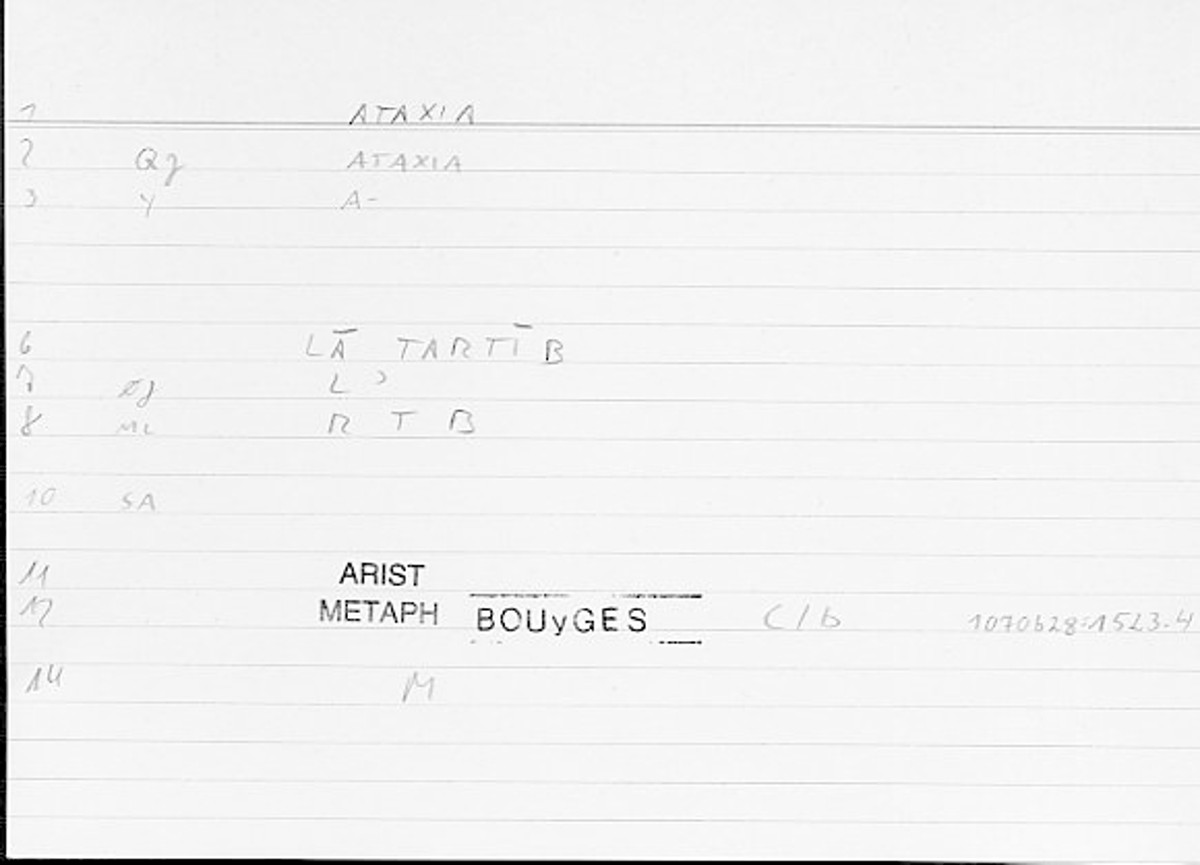 1 ATAXIA
2 Qz ATAXIA
3 Y A-
6 LĀ TARTĪB
7 øj L ʾ
8 ML R T B
10 SA
11 ARIST
12 METAPH BOUyGES C/b 1070b28:1523.4
14 M